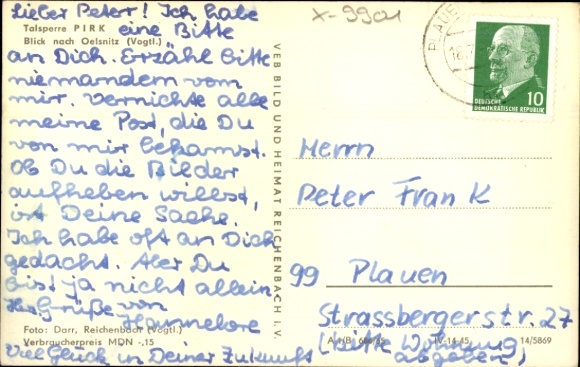 Lieber Peter! Ich habe
Talsperre PIRK
eine Bitte
Blick nach Oelsnitz (Vogtl.)
an Dich. Erzähl bitte
niemandem vom
mir. Vernichte alle
meine Post, die Du
von mir bekamst.
Ob Du die Bilder
aufheben willst,
ist Deine Sache.
Ich habe oft an Dich
gedacht. Aber Du
bist ja nicht allein.
Grüße von
Hannelore
Foto: Darr, Reichenbach (Vogtl.)
Verbraucherpreis MDN -,15
Viel Glück in Deiner Zukunft
VEB BILD UND HEIMAT REICHENBACH I. V.
X-9901
PLAUE
10
DEUTSCHE
DEMOKRATISCHE REPUBLIK
Herrn
Peter Frank
99 Plauen
Strassberger str. 27
(bitte Wohnung
abgeben)
IV-14-45
14/5869